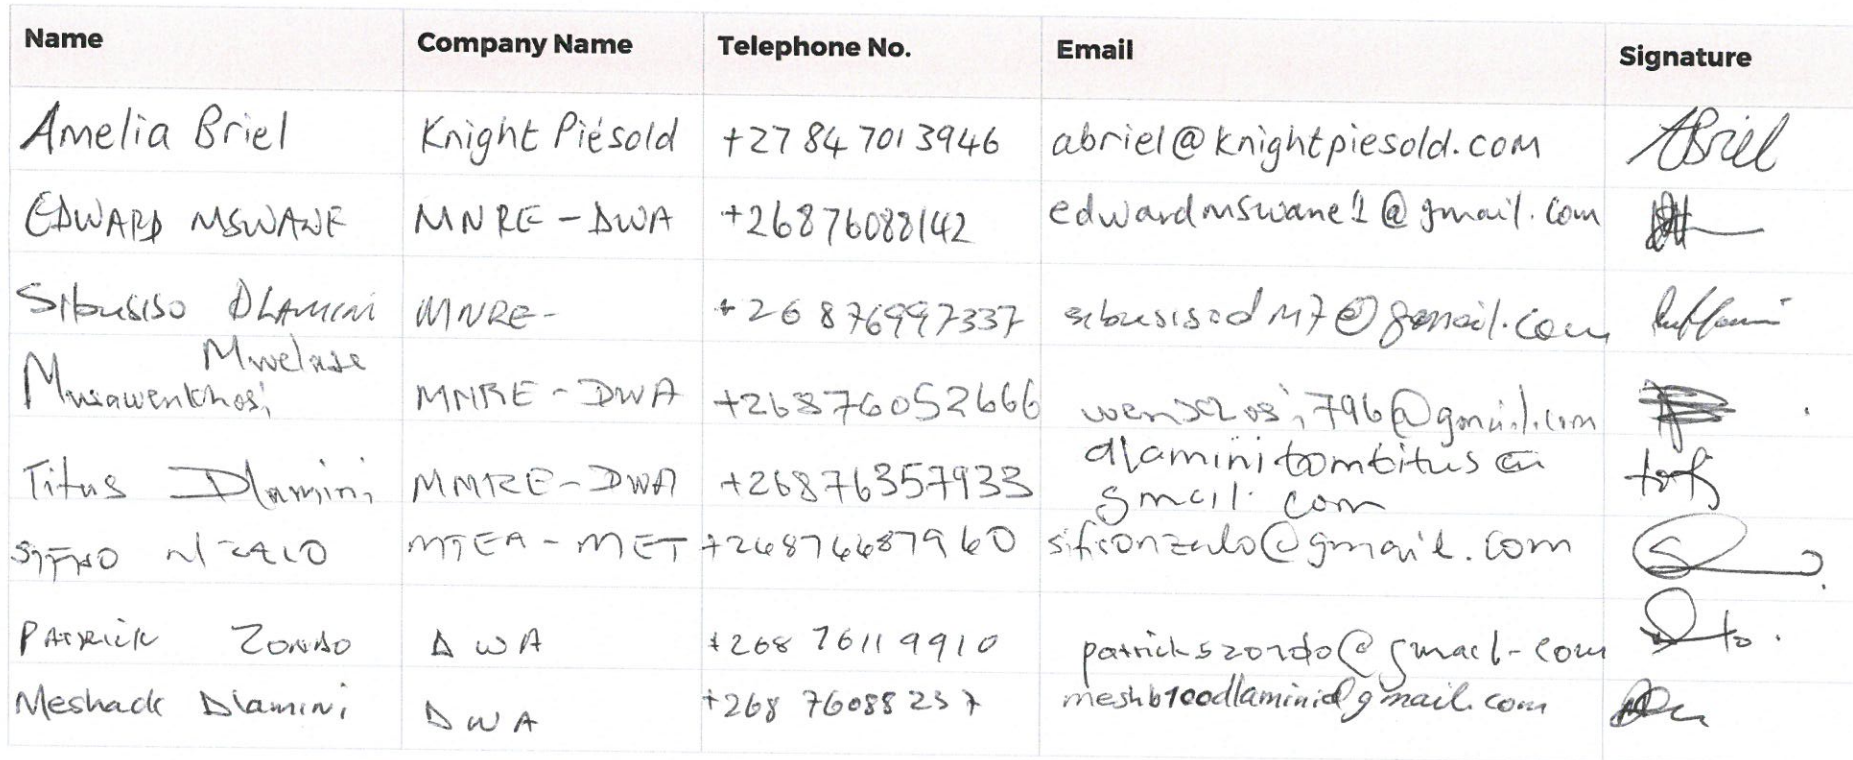 Name Company Name Telephone No. Email Signature
Amelia Briel Knight Piésold +27 84 701 3946 abriel@knightpiesold.com ABriel
EDWARD MSWANE MNRE - DWA +26876088142 edwardmswane1@gmail.com
Sibusiso DLAMINI MNRE- +26876997337 sibusisodm7@gmail.com
Mwelase
Musawenkhosi MNRE - DWA +26876052666
Titus Dlamini MNRE-DWA +26876357933 dlaminitomtitus@
gmail.com
SIFISO NZALO MTEA - MET +26876687960 sifisonzalo@gmail.com
PATRICK ZONDO DWA +268 7611 9910 patrickszondo@gmail-com
Meshack Dlamini DWA +268 76088237 meshb100dlamini@gmail.com